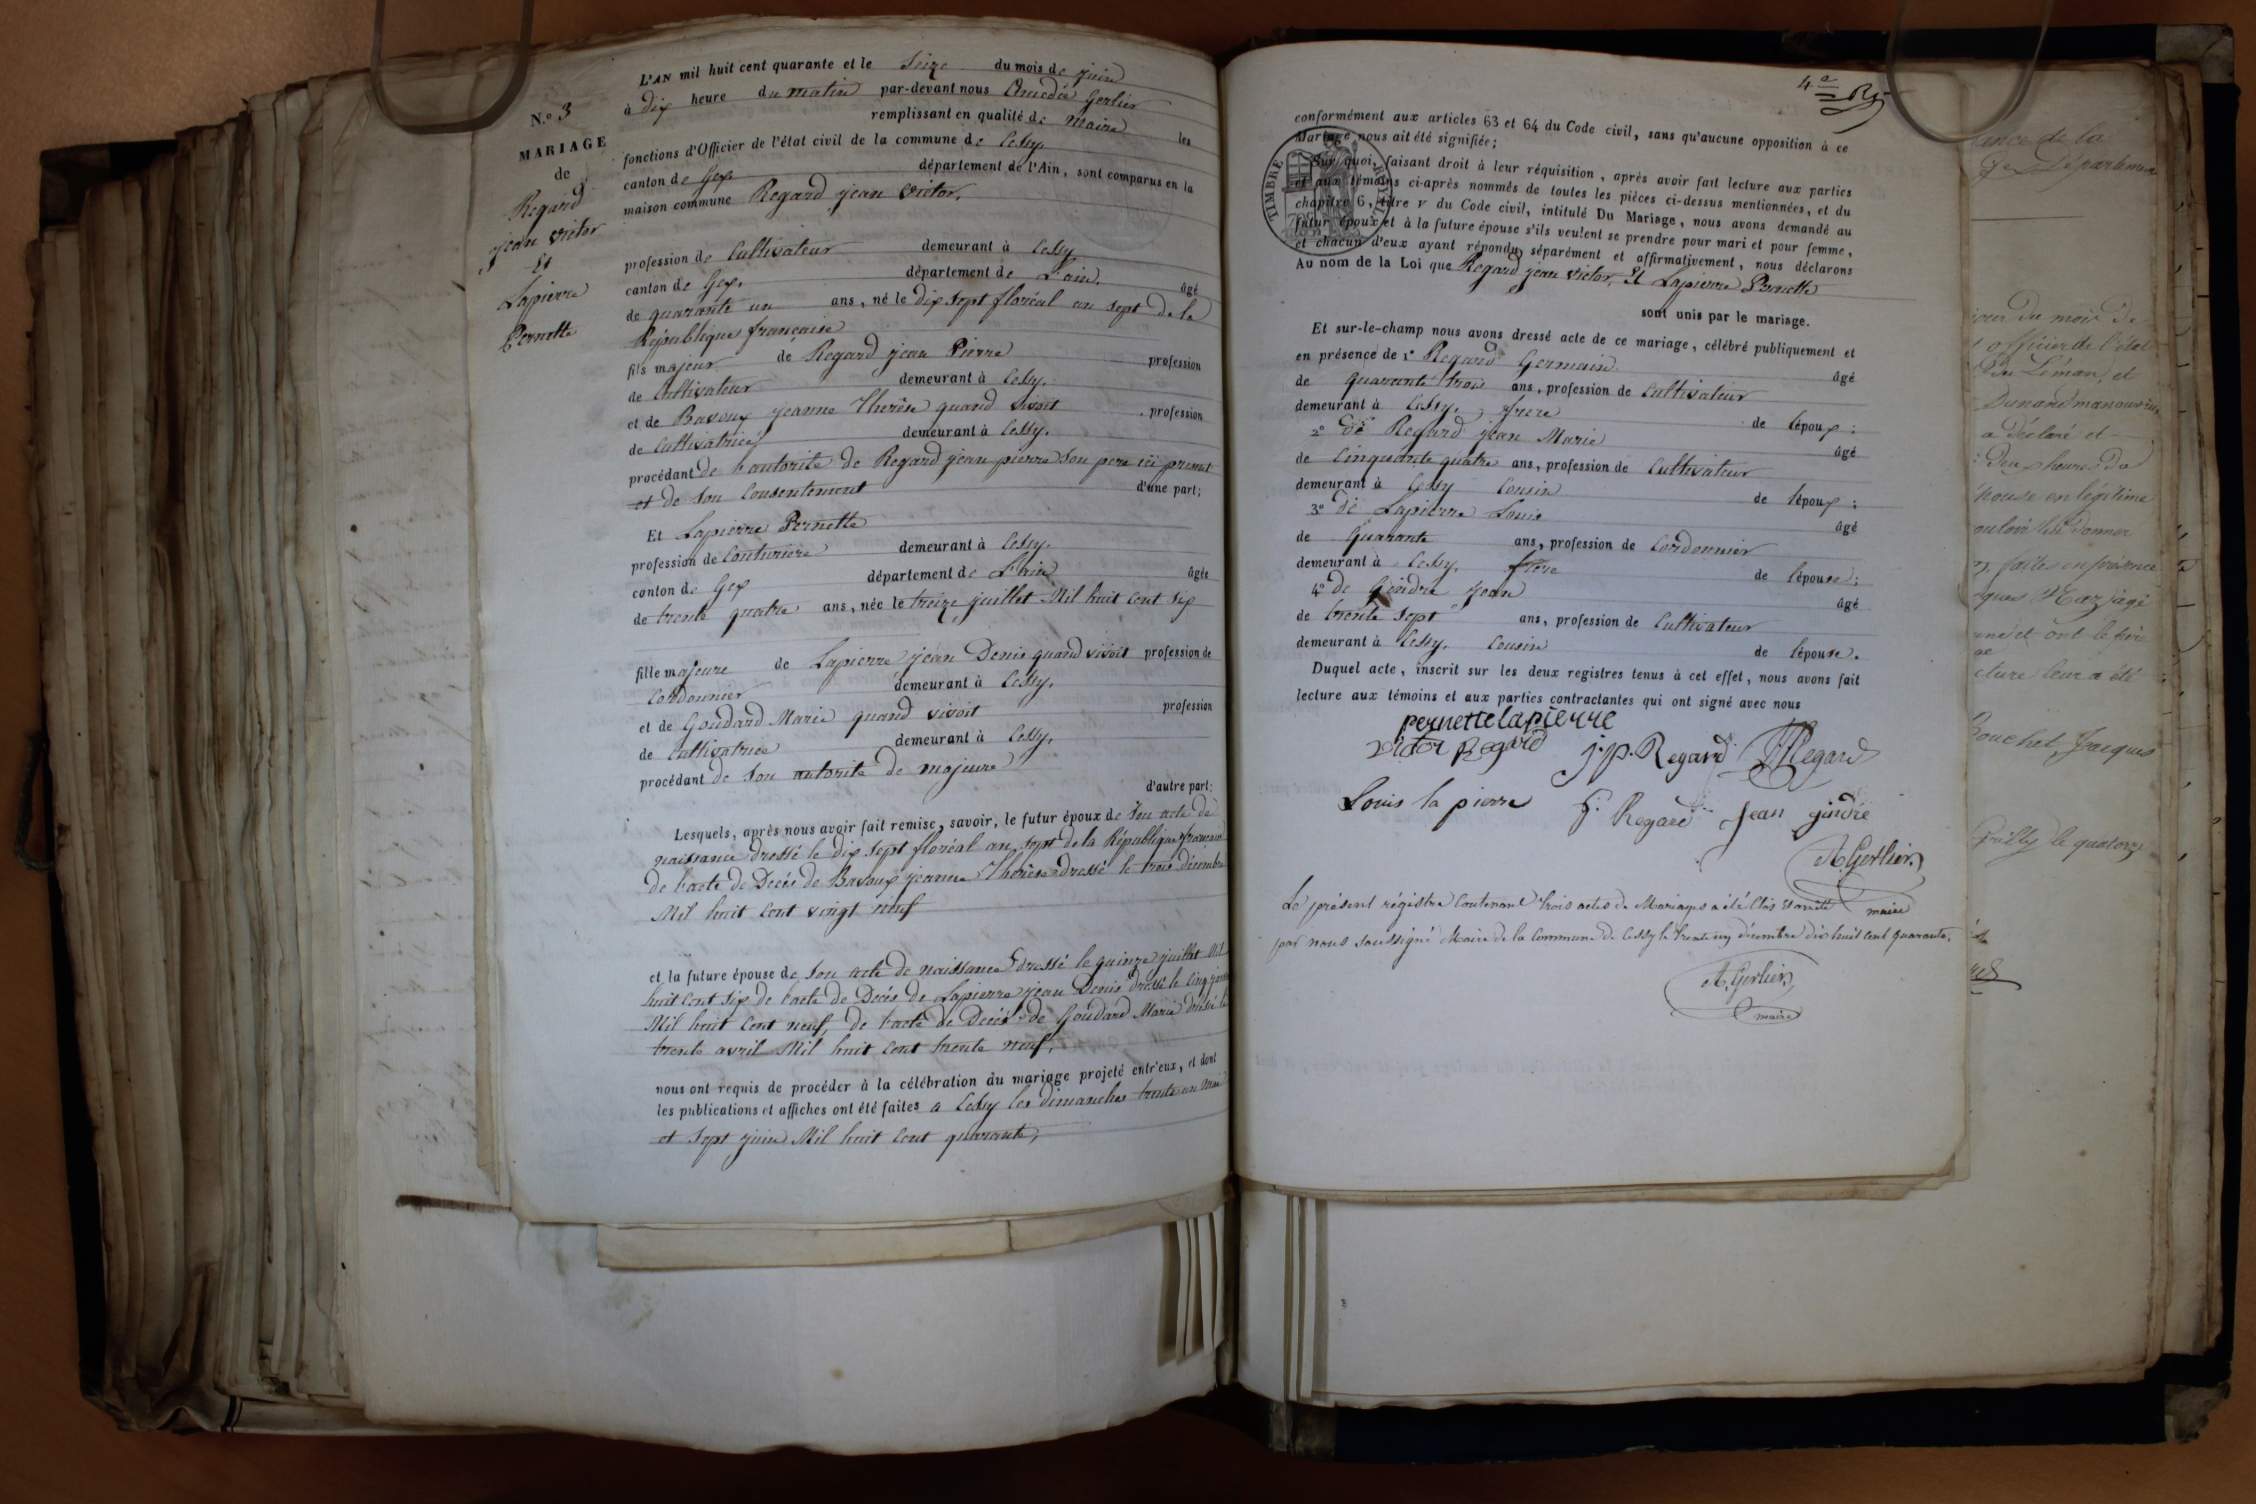 N.º 3
MARIAGE
de
Regard
jean victor
Et
Lapierre
Pernette
L'AN mil huit cent quarante et le Seize du mois de juin
à dix heure du matin par-devant nous Amedée Gerlier
remplissant en qualité de Maire les
fonctions d'Officier de l'état civil de la commune de Cessy
canton de Gex département de l'Ain, sont comparus en la
maison commune Regard jean victor,
profession de Cultivateur demeurant à Cessy
canton de Gex, département de L'ain, âgé
de quarante un ans, né le dix sept floréal an sept de la
République française
fils majeur de Regard jean Pierre profession
de Cultivateur demeurant à Cessy.
et de Bavoux jeanne Therèse quand vivoit profession
de Cultivatrice demeurant à Cessy.
procédant de l'autorité de Regard jean pierre son pere ici présent
et de son Consentement d'une part;
Et Lapierre Pernette
profession de Couturiere demeurant à Cessy.
canton de Gex département de L'ain âgée
de trente quatre ans, née le treize juillet Mil huit cent six
fille majeure de Lapierre jean Denis quand vivoit profession de
Cordonnier demeurant à Cessy.
et de Goudard Marie quand vivoit profession
de Cultivatrice demeurant à Cessy.
procédant de son autorité de majeure
d'autre part:
Lesquels, après nous avoir fait remise, savoir, le futur époux de son acte de
naissance dressé le dix sept floréal an sept de la République française
de l'acte de Decés de Bavoux jeanne Therèse dressé le trois décembre
Mil huit cent vingt neuf
et la future épouse de son acte de naissance dressé le quinze juillet Mil
huit cent six de l'acte de Decés de Lapierre jean Denis dressé le cinq
Mil huit cent neuf, de l'acte de Decés de Goudard Marie dressé le
trente avril Mil huit cent trente neuf,
nous ont requis de procéder à la célébration du mariage projeté entr'eux, et dont
les publications et affiches ont été faites a Cessy les dimanches trente un mai
et sept juin Mil huit cent quarante,
4e
conformément aux articles 63 et 64 du Code civil, sans qu'aucune opposition à ce
Mariage nous ait été signifiée;
Sur quoi, faisant droit à leur réquisition, après avoir fait lecture aux parties
et aux témoins ci-après nommés de toutes les pièces ci-dessus mentionnées, et du
chapitre 6, titre V du Code civil, intitulé Du Mariage, nous avons demandé au
futur époux et à la future épouse s'ils veulent se prendre pour mari et pour femme,
et chacun d'eux ayant répondu séparément et affirmativement, nous déclarons
Au nom de la Loi que Regard jean victor, Et Lapierre Pernette
sont unis par le mariage.
TIMBRE ROYAL
Et sur-le-champ nous avons dressé acte de ce mariage, célébré publiquement et
en présence de 1º Regard Germain âgé
de quarante trois ans, profession de Cultivateur
demeurant à Cessy, frere de l'époux;
2º de Regard jean Marie âgé
de Cinquante quatre ans, profession de Cultivateur
demeurant à Cessy Cousin de l'époux;
3º de Lapierre Louis âgé
de Quarante ans, profession de Cordonnier
demeurant à Cessy. frere de l'épouse;
4º de Gindre jean âgé
de trente sept ans, profession de Cultivateur
demeurant à Cessy. Cousin de l'épouse.
Duquel acte, inscrit sur les deux registres tenus à cet effet, nous avons fait
lecture aux témoins et aux parties contractantes qui ont signé avec nous
pernette lapierre
victor Regard j.p. Regard Regard
Louis la pierre G. Regard Jean gindre
A. Gerlier
maire
Le présent régistre Contenant trois actes de Mariages a été Clos et arrêté
par nous soussigné Maire de la Commune de Cessy le trente un décembre dix huit cent quarante.
A. Gerlier
maire
ance de la
Département
jour du mois de
officier de l'état
du Léman, et
Dunand manouvrier
a déclaré et
deux heures du
épouse en légitime
ouloir lui donner
faites en présence
et ont le
cture leur a été
Bouchet, Jacques